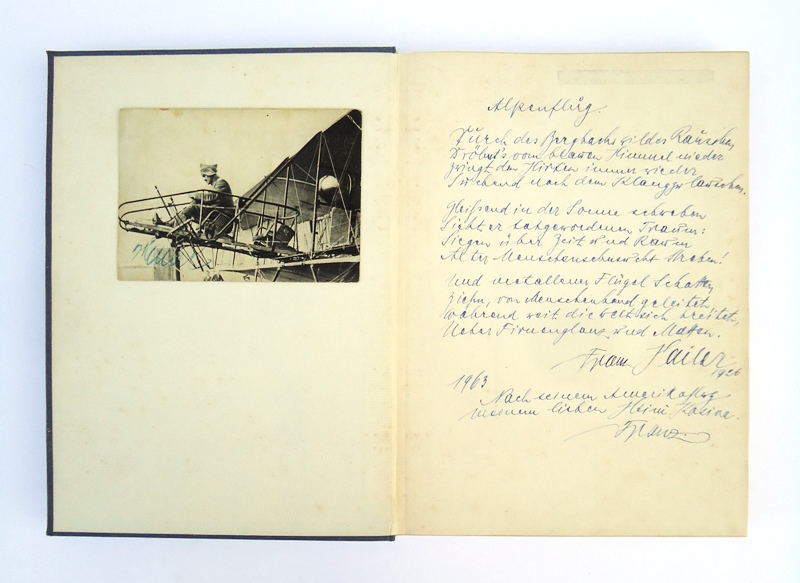 Alpenflug.
Durch des Bergbachs wildes Rauschen
Dröhnt's vom blauen Himmel nieder
zwingt den Hirten immer wieder
nach dem Klang zu lauschen.
Gleißend in der Sonne schweben
Sieht er tatgewordenen Traum:
Siegen über Zeit und Raum
Alter Menschensehnsucht Streben!
Und metallener Flügel Schatten
Ziehn, von Menschenhand geleitet,
Während weit die Welt sich breitet,
Ueber Firnenglanz und Matten.
Franz Hailer
1926
1963
Nach seinem Amerikaflug
meinem lieben Heini
Franz.